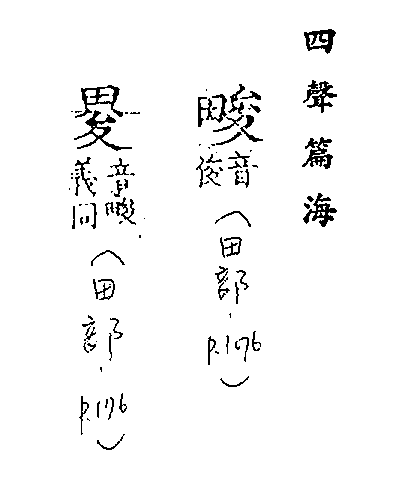 四聲篇海
畯 音俊（田部．
畟 音畯義同（田部．